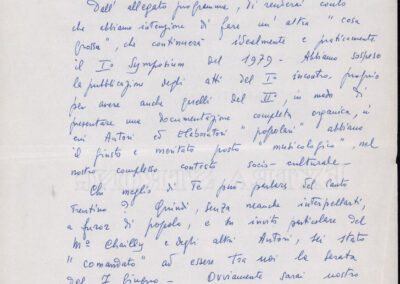 Dall'allegato programma, ti renderai conto
che abbiamo intenzione di fare un'altra "cosa
grossa", che continuerà idealmente e praticamente
il I° Symposium del 1979 - Abbiamo sospeso
la pubblicazione degli atti del I° incontro, proprio
per avere anche quelli del II°, in modo di
presentare una documentazione completa, organica, in
cui Autori ed Elaboratori "popolari" abbiano
il giusto e meritato posto "musicologico", nel
nostro complesso contesto socio-culturale -
Chi meglio di Te può parlare del Canto
Trentino? Quindi, senza neanche interpellarti,
a furor di popolo, e su invito particolare del
M° Chailly e degli altri Autori, sei stato
"comandato" ad essere tra noi la serata
del 7 Giugno - Ovviamente sarai nostro